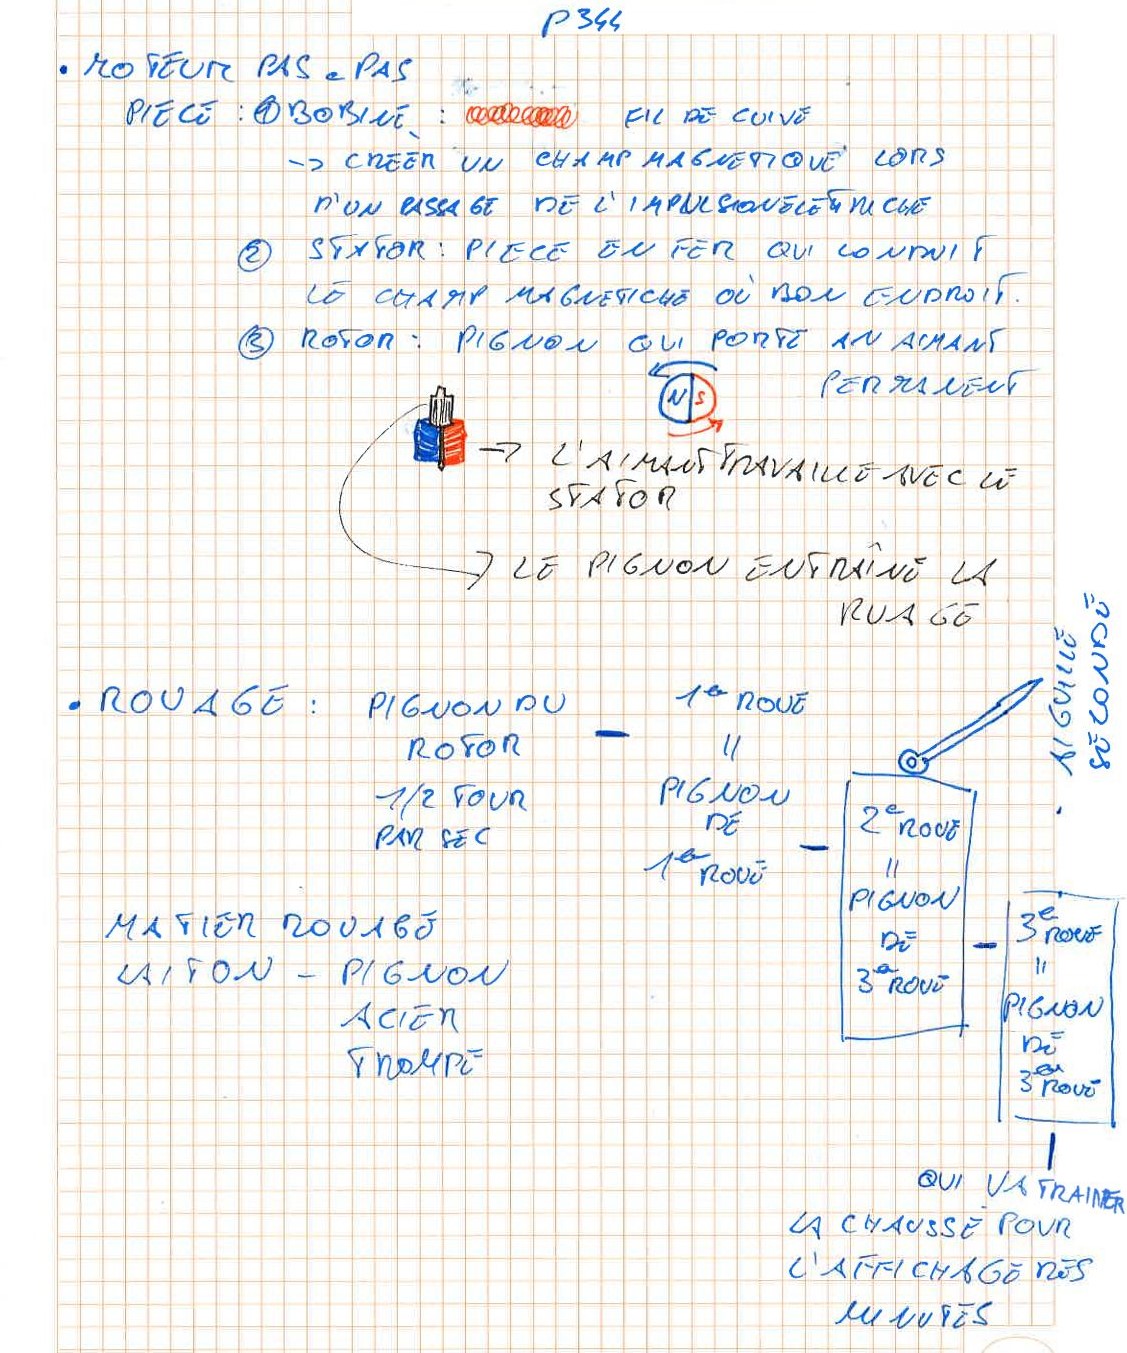 P344
• MOTEUR PAS à PAS
PIECE : ① BOBINE : FIL DE CUIVE
-> CREER UN CHAMP MAGNETIQUE LORS
D'UN PASSAGE DE L'IMPULSION ELETRICHE
② STATOR : PIECE EN FER QUI CONDUIT
LE CHAMP MAGNETICHE OÙ BON ENDROIT.
③ ROTOR : PIGNON QUI PORTE AN AIMANT
PERMANENT
N S
-> L'AIMANT TRAVAILLE AVEC LE
STATOR
-> LE PIGNON ENTRAÎNE LA
RUAGE
AIGUILLE
SECONDE
• ROUAGE : PIGNON DU
ROTOR
1/2 TOUR
PAR SEC
-
1e ROUE
"
PIGNON
DE
1e ROUE
-
2e ROUE
"
PIGNON
DE
3e ROUE
-
3e ROUE
"
PIGNON
DE
3e ROUE
QUI VA TRAINER
LA CHAUSSE POUR
L'AFFICHAGE DES
MINUTES
MATIER ROUAGE
LAITON - PIGNON
ACIER
TROMPE